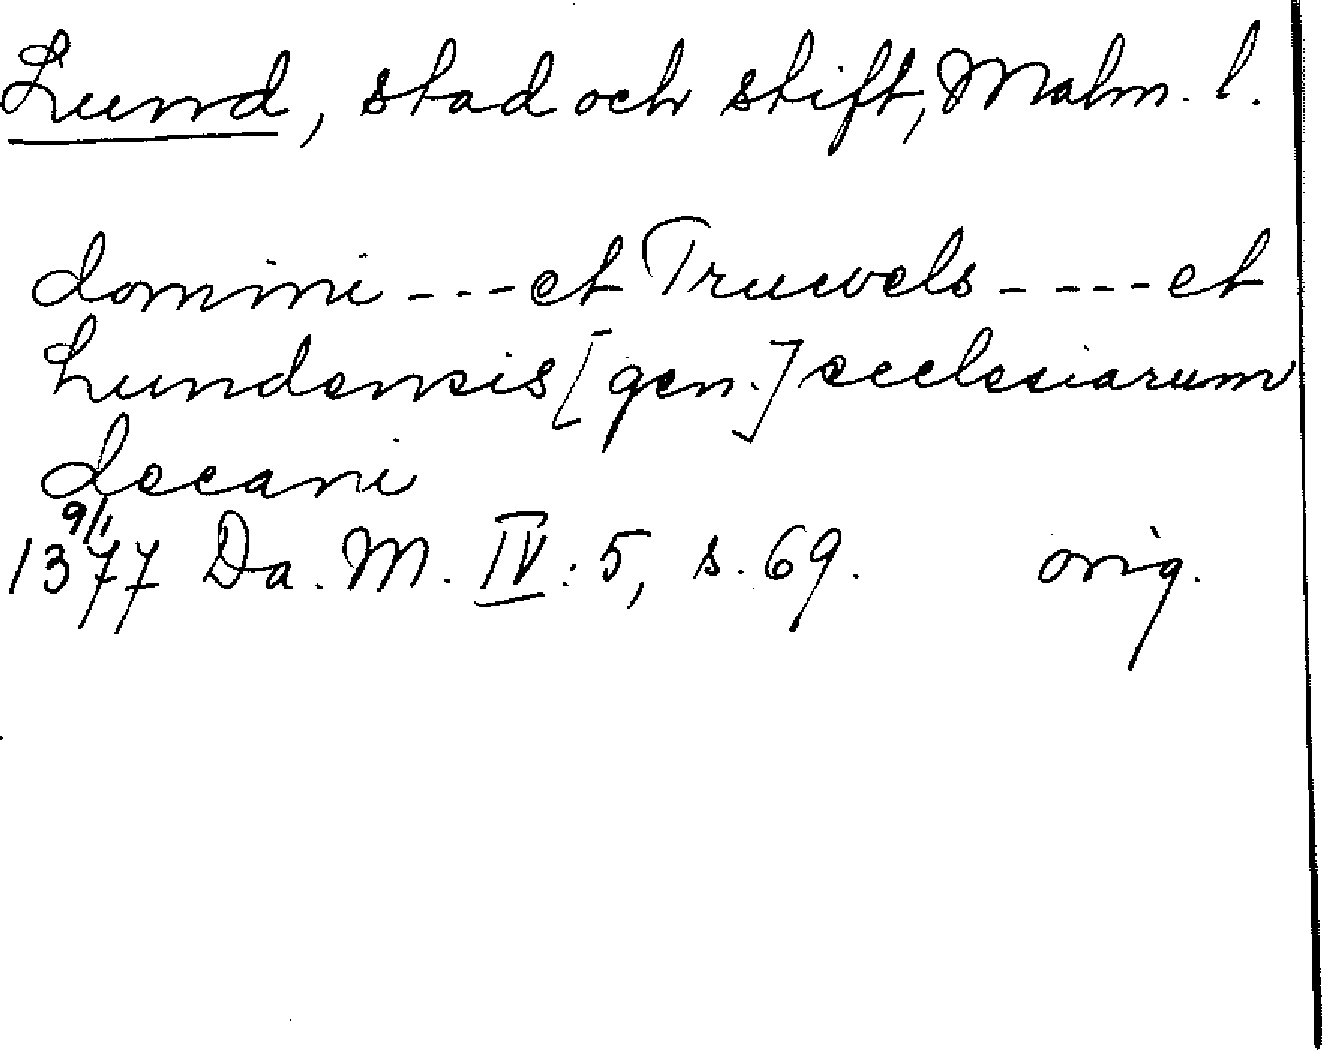 Lund, stad och stift, Malm. l.
domini - - - et Truwels - - - - et
Lundensis [gen.] ecclesiarum
decani
1377 9/1 Da. M. IV: 5, s. 69. orig.